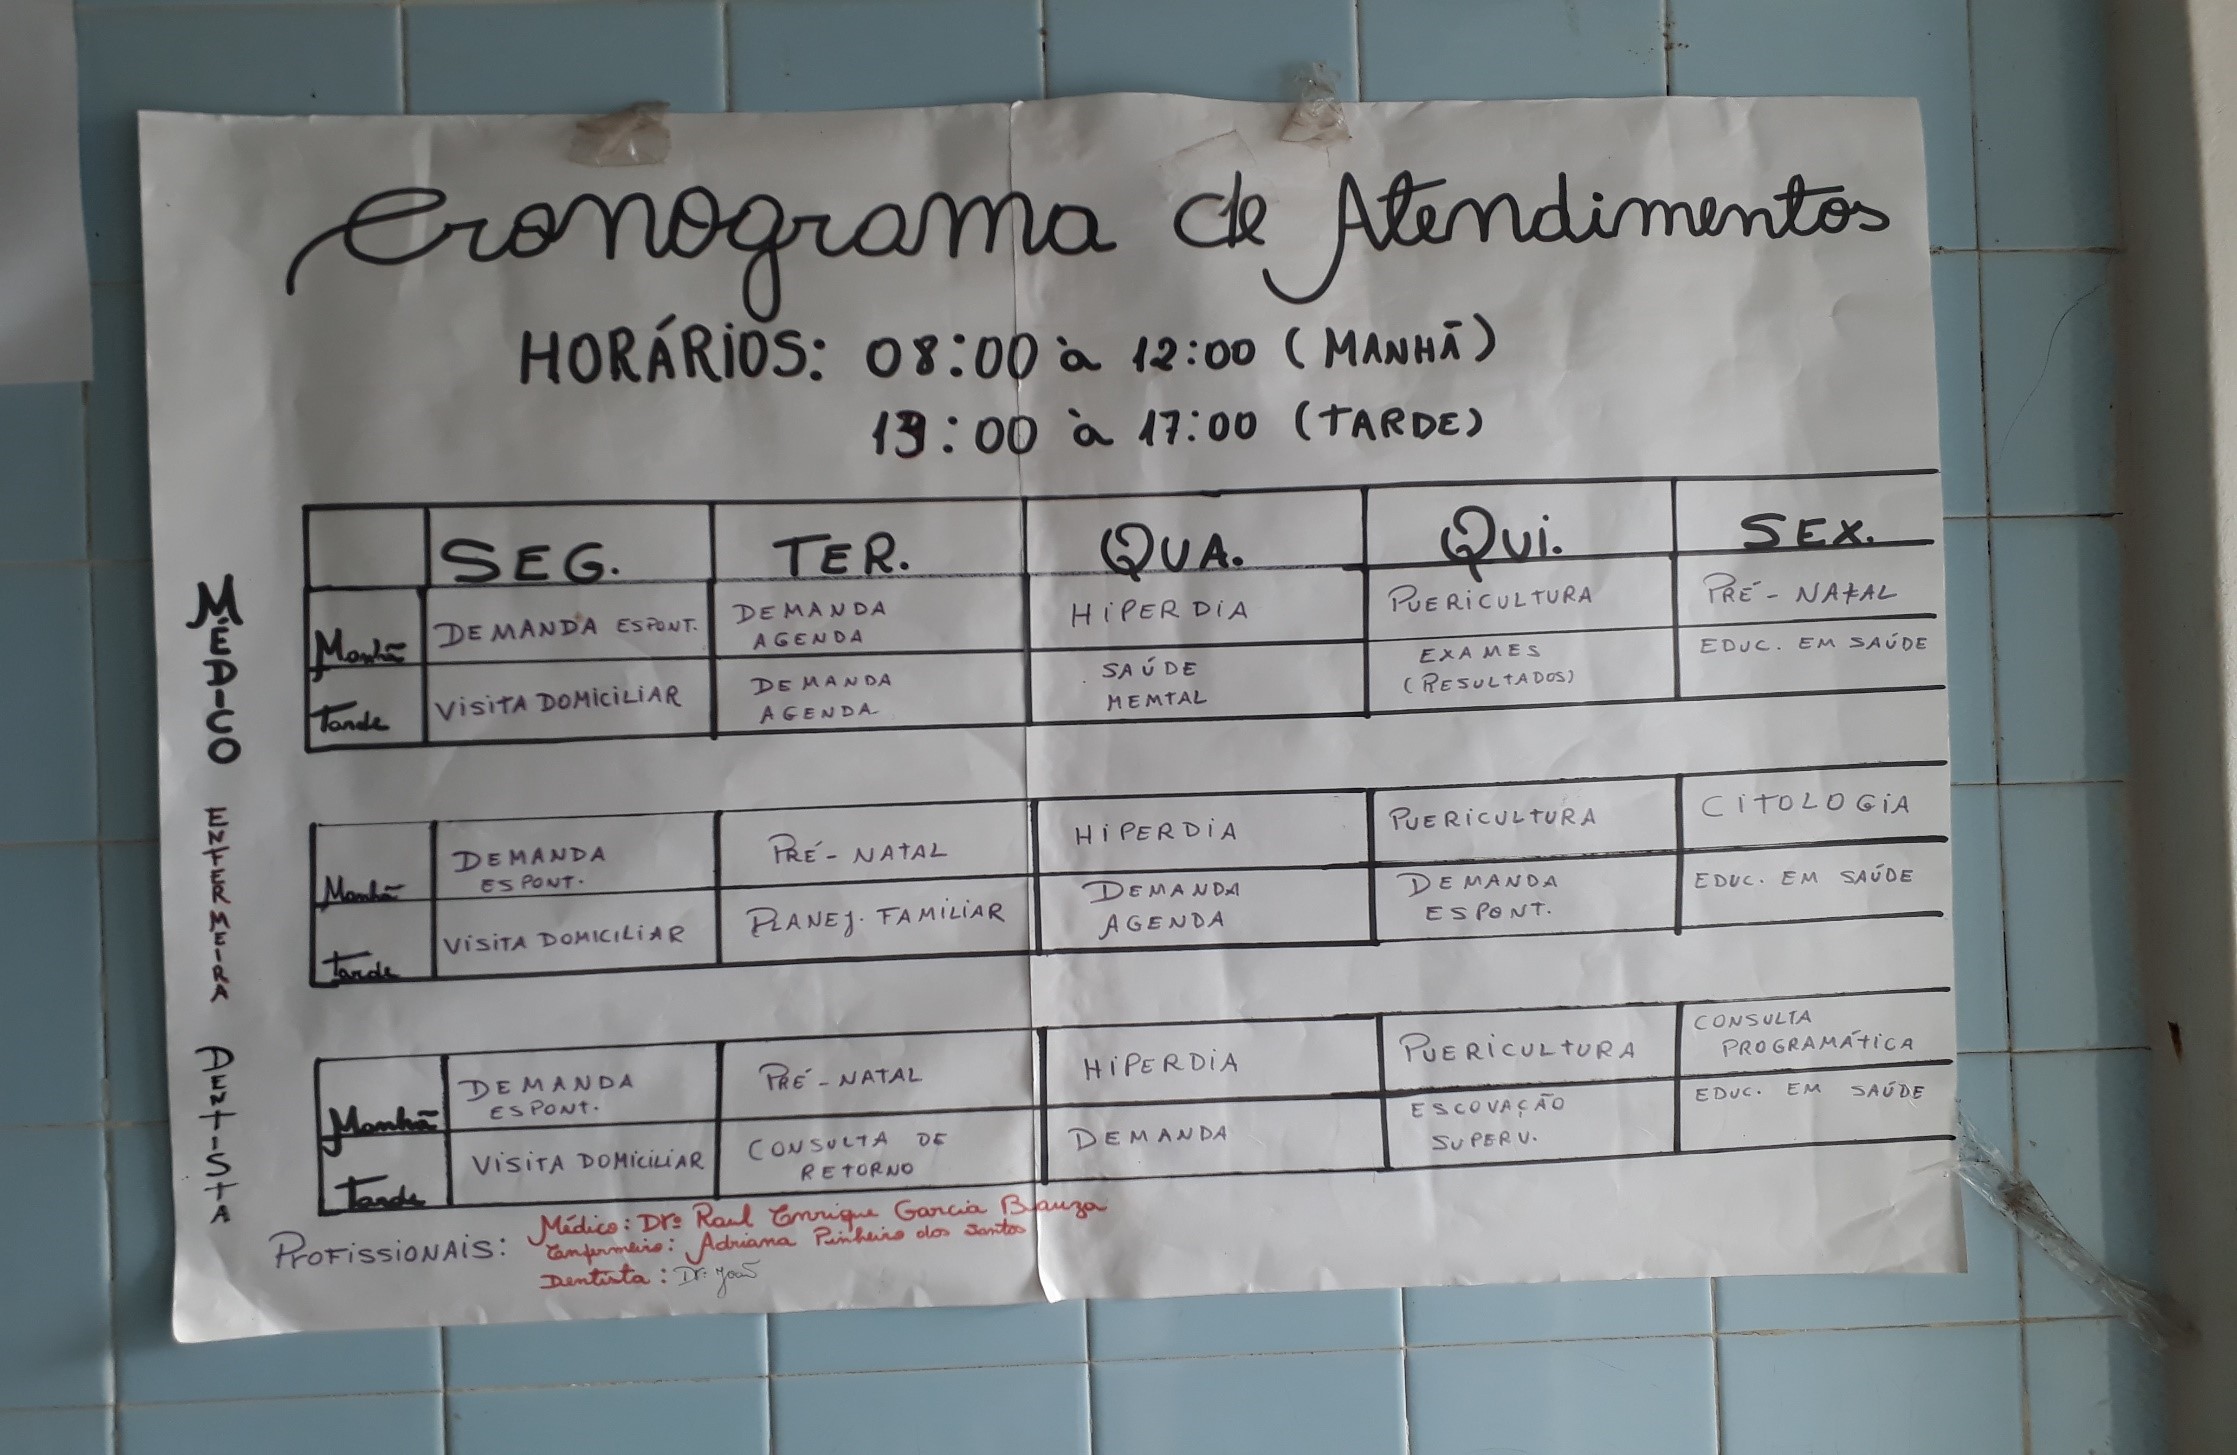 Cronograma de Atendimentos
HORÁRIOS: 08:00 à 12:00 (MANHÃ)
13:00 à 17:00 (TARDE)
SEG. TER. QUA. QUI. SEX.
MÉDICO
Manhã DEMANDA ESPONT. DEMANDA AGENDA HIPERDIA PUERICULTURA PRÉ-NATAL
Tarde VISITA DOMICILIAR DEMANDA AGENDA SAÚDE MEMTAL EXAMES (RESULTADOS) EDUC. EM SAÚDE
ENFERMEIRA
Manhã DEMANDA ESPONT. PRÉ-NATAL HIPERDIA PUERICULTURA CITOLOGIA
Tarde VISITA DOMICILIAR PLANEJ. FAMILIAR DEMANDA AGENDA DEMANDA ESPONT. EDUC. EM SAÚDE
DENTISTA
Manhã DEMANDA ESPONT. PRÉ-NATAL HIPERDIA PUERICULTURA CONSULTA PROGRAMÁTICA
Tarde VISITA DOMICILIAR CONSULTA DE RETORNO DEMANDA ESCOVAÇÃO SUPERV. EDUC. EM SAÚDE
PROFISSIONAIS: Médico: Drº Raul Enrique Garcia Bauza
Enfermeiro: Adriana Pinheiro dos Santos
Dentista: Dr. João